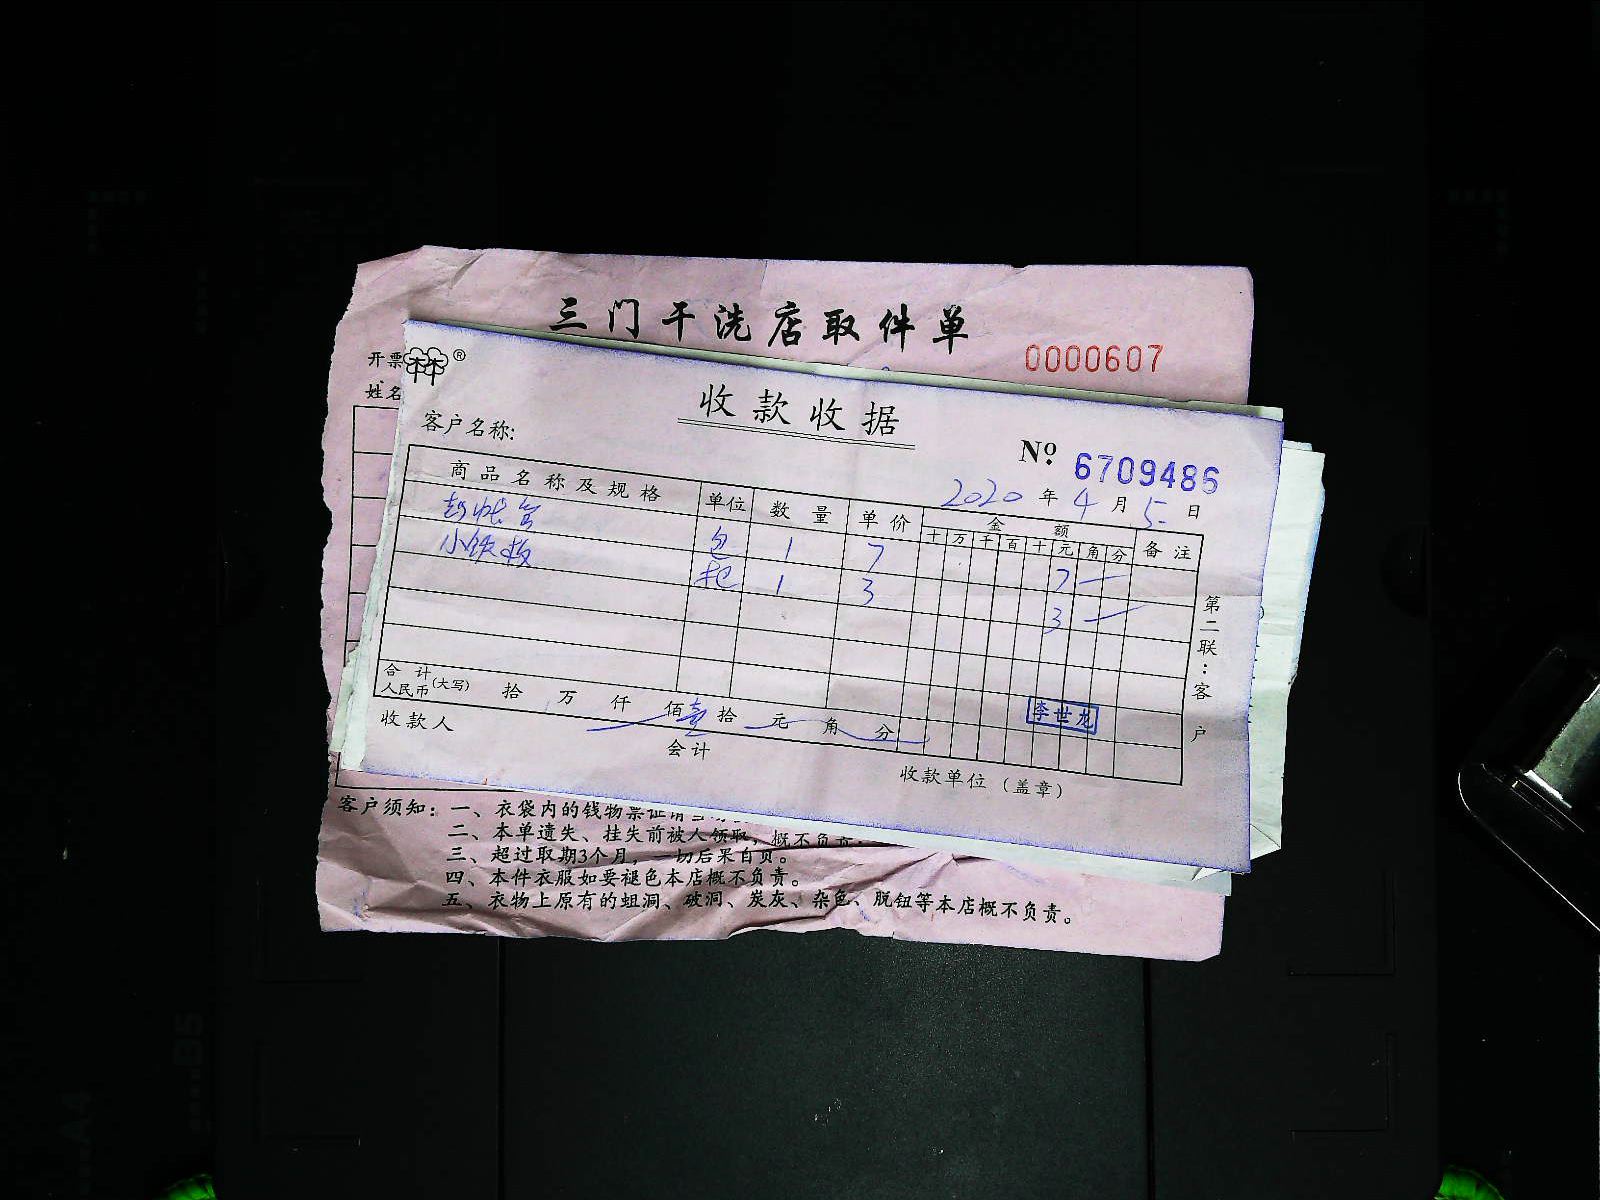 三门干洗店取件单
0000607
开票
姓名
®
收款收据
客户名称:
Nº 6709486
2020 年 4 月 5 日
商品名称及规格 单位 数量 单价 金额 备注
十 万 千 百 十 元 角 分
包 1 7 7
小铁板 把 1 3 3
合计
人民币(大写) 拾 万 仟 佰 壹 拾 元 角 分
李世龙
收款人 会计 收款单位(盖章)
第二联:客户
客户须知:一、衣袋内的钱物票证请
二、本单遗失、挂失前被人领取,概不负责.
三、超过取期3个月,一切后果自负。
四、本件衣服如要褪色本店概不负责。
五、衣物上原有的蛆洞、破洞、炭灰、杂色、脱钮等本店概不负责。
B5
A4